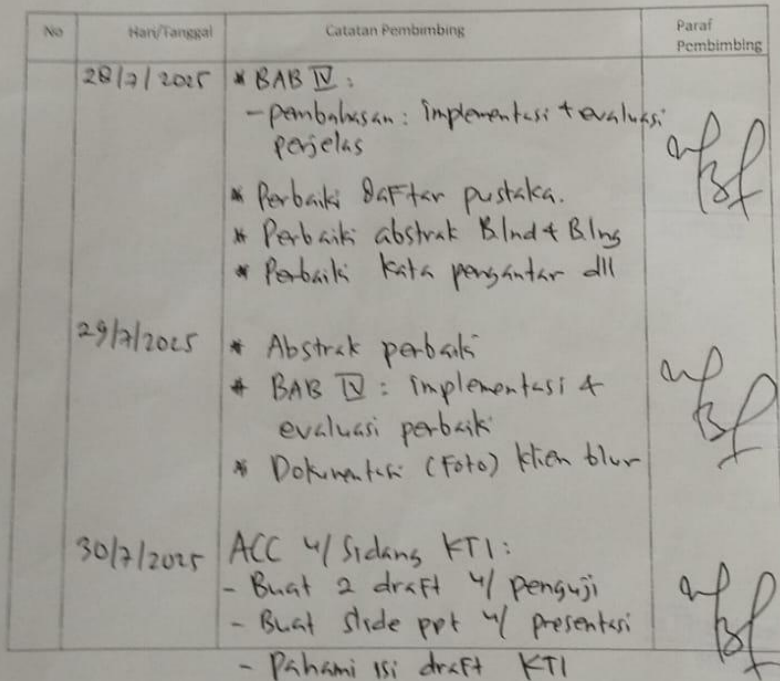 No Hari/Tanggal Catatan Pembimbing Paraf
Pembimbing
28/7/2025 * BAB IV :
- pembahasan : implementasi + evaluasi
perjelas
* Perbaiki daftar pustaka.
* Perbaiki abstrak B.Ind & B.Ing
* Perbaiki kata pengantar dll
29/7/2025 * Abstrak perbaiki
* BAB IV : implementasi &
evaluasi perbaiki
* Dokumentasi (Foto) klien blur
30/7/2025 ACC u/ Sidang KTI :
- Buat 2 draft u/ penguji
- Buat slide ppt u/ presentasi
- Pahami isi draft KTI